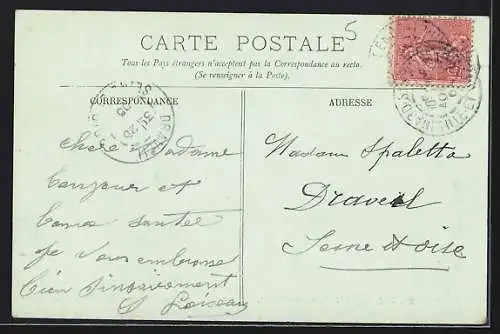 5
CARTE POSTALE
Tous les Pays étrangers n'acceptent pas la Correspondance au recto.
(Se renseigner à la Poste).
CORRESPONDANCE
ADRESSE
Chère Madame
bonjour et
bonnes santée
je vous embrasse
bien sinsairement
Loiseau
Madame Spaletta
Draveil
Seine et oise